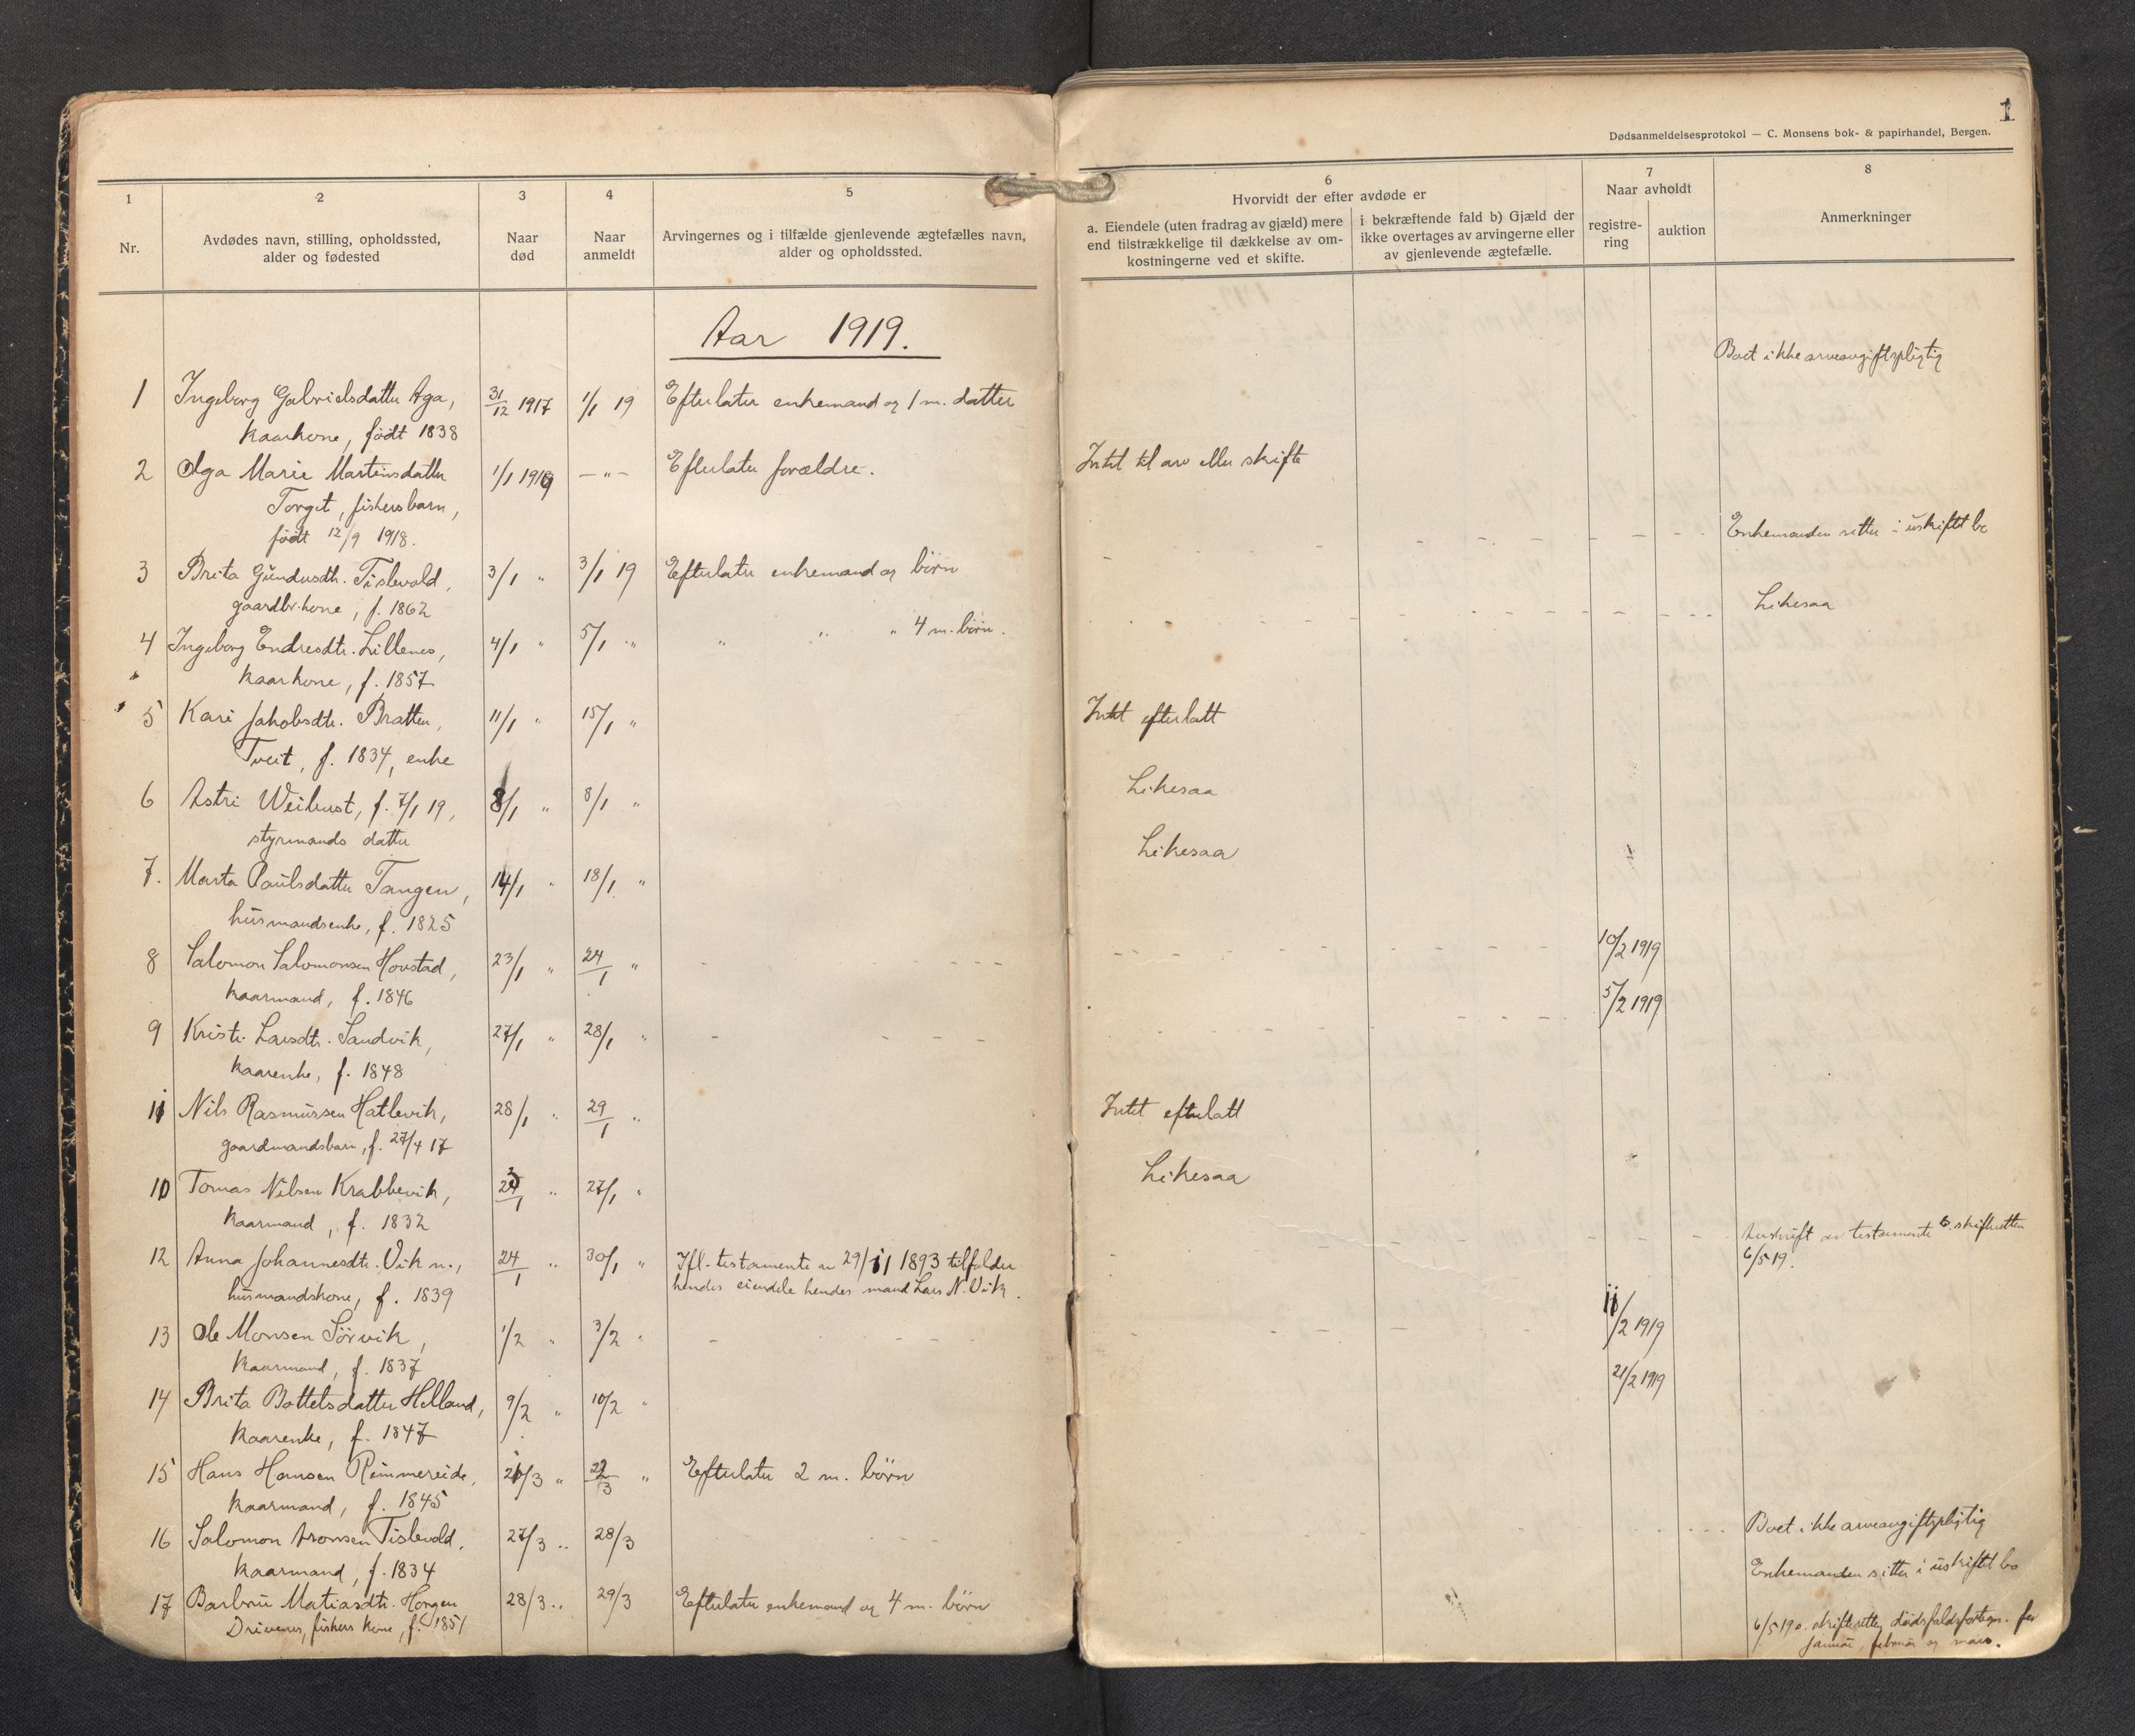 1
Dødsanmeldelsesprotokol — C. Monsens bok- & papirhandel, Bergen.
1
Nr.
2
Avdødes navn, stilling, opholdssted,
alder og fødested
3
Naar
død
4
Naar
anmeldt
5
Arvingernes og i tilfælde gjenlevende ægtefælles navn,
alder og opholdssted.
6
Hvorvidt der efter avdøde er
a. Eiendele (uten fradrag av gjæld) mere
end tilstrækkelige til dækkelse av om-
kostningerne ved et skifte.
i bekræftende fald b) Gjæld der
ikke overtages av arvingerne eller
av gjenlevende ægtefælle.
7
Naar avholdt
registre-
ring
auktion
8
Anmerkninger
Aar 1919.
1 Ingeborg Gabrielsdatter Aga, 31/12 1917 1/1 19 Efterlater enkemand og 1 m. datter Boet ikke arveavgiftspligtig
kaarkone, født 1838
2 Olga Marie Martinsdatter 1/1 1919 — " — Efterlater forældre. Intet til arv eller skifte
Torget, fiskersbarn,
født 12/9 1918.
3 Brita Gundersdtr. Tislevold, 3/1 " 3/1 19 Efterlater enkemand og börn Enkemanden sitter i uskiftet bo
gaardbr.kone, f. 1862
4 Ingeborg Endresdtr. Lillenes, 4/1 " 5/1 " " " " 4 m. börn. Likesaa
kaarkone, f. 1857
5 Kari Jakobsdtr. Bratten, 11/1 " 15/1 " Intet efterlatt
Tveit, f. 1834, enke
6 Astri Weihust, f. 7/1 19, 8/1 " 8/1 " Likesaa
styrmands datter
7. Marta Paulsdatter Tangen, 14/1 " 18/1 " Likesaa
husmandsenke, f. 1825
8 Salomon Salomonsen Hovstad, 23/1 " 24/1 " 10/2 1919
kaarmand, f. 1846
9 Kristi Larsdtr. Sandvik, 27/1 " 28/1 " 5/2 1919
kaarenke, f. 1848
11 Nils Rasmussen Hatlevik, 28/1 " 29/1 " Intet efterlatt
gaardmandsbarn, f. 27/4 17
10 Tomas Nilsen Krabbevik, " 27/1 " Likesaa
kaarmand, f. 1832
12 Anna Johannesdtr. Vik n., 24/1 " 30/1 " Ifl. testamente av 29/11 1893 tilfalder Avskrift av testamente t. skifteretten
husmandskone, f. 1839 hendes eiendele hendes mand Lars N. Vik. 6/5 19.
13 Ole Monsen Sörvik, 1/2 " 3/2 " 11/2 1919
kaarmand, f. 1837
14 Brita Bottelsdatter Helland, 9/2 " 10/2 " 21/2 1919
kaarenke, f. 1847
15 Hans Hansen Rimmereide, 21/3 " 22/3 " Efterlater 2 m. börn
kaarmand, f. 1845
16 Salomon Aronsen Tislevold, 27/3 " 28/3 Boet ikke arveavgiftspligtig
kaarmand, f. 1834
17 Barbru Matiasdtr. Horgen 28/3 " 29/3 Efterlater enkemand og 4 m. börn Enkemanden sitter i uskiftet bo
Drivenes, fiskers kone, f. 1851
6/5 19 skifteretten dödsfaldsfortegn. for
januar, februar og mars.